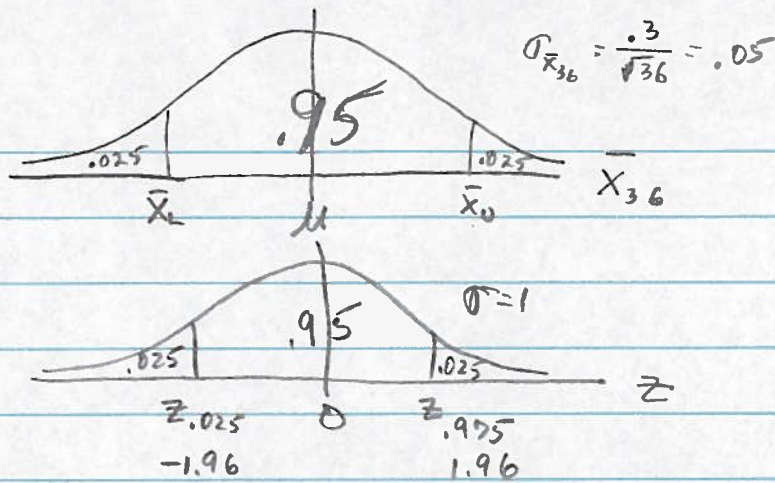 σx̄36 = .3/√36 = .05
.95
.025 .025 X̄36
X̄L μ X̄U
σ=1
.95
.025 .025 Z
Z.025 0 Z.975
-1.96 1.96